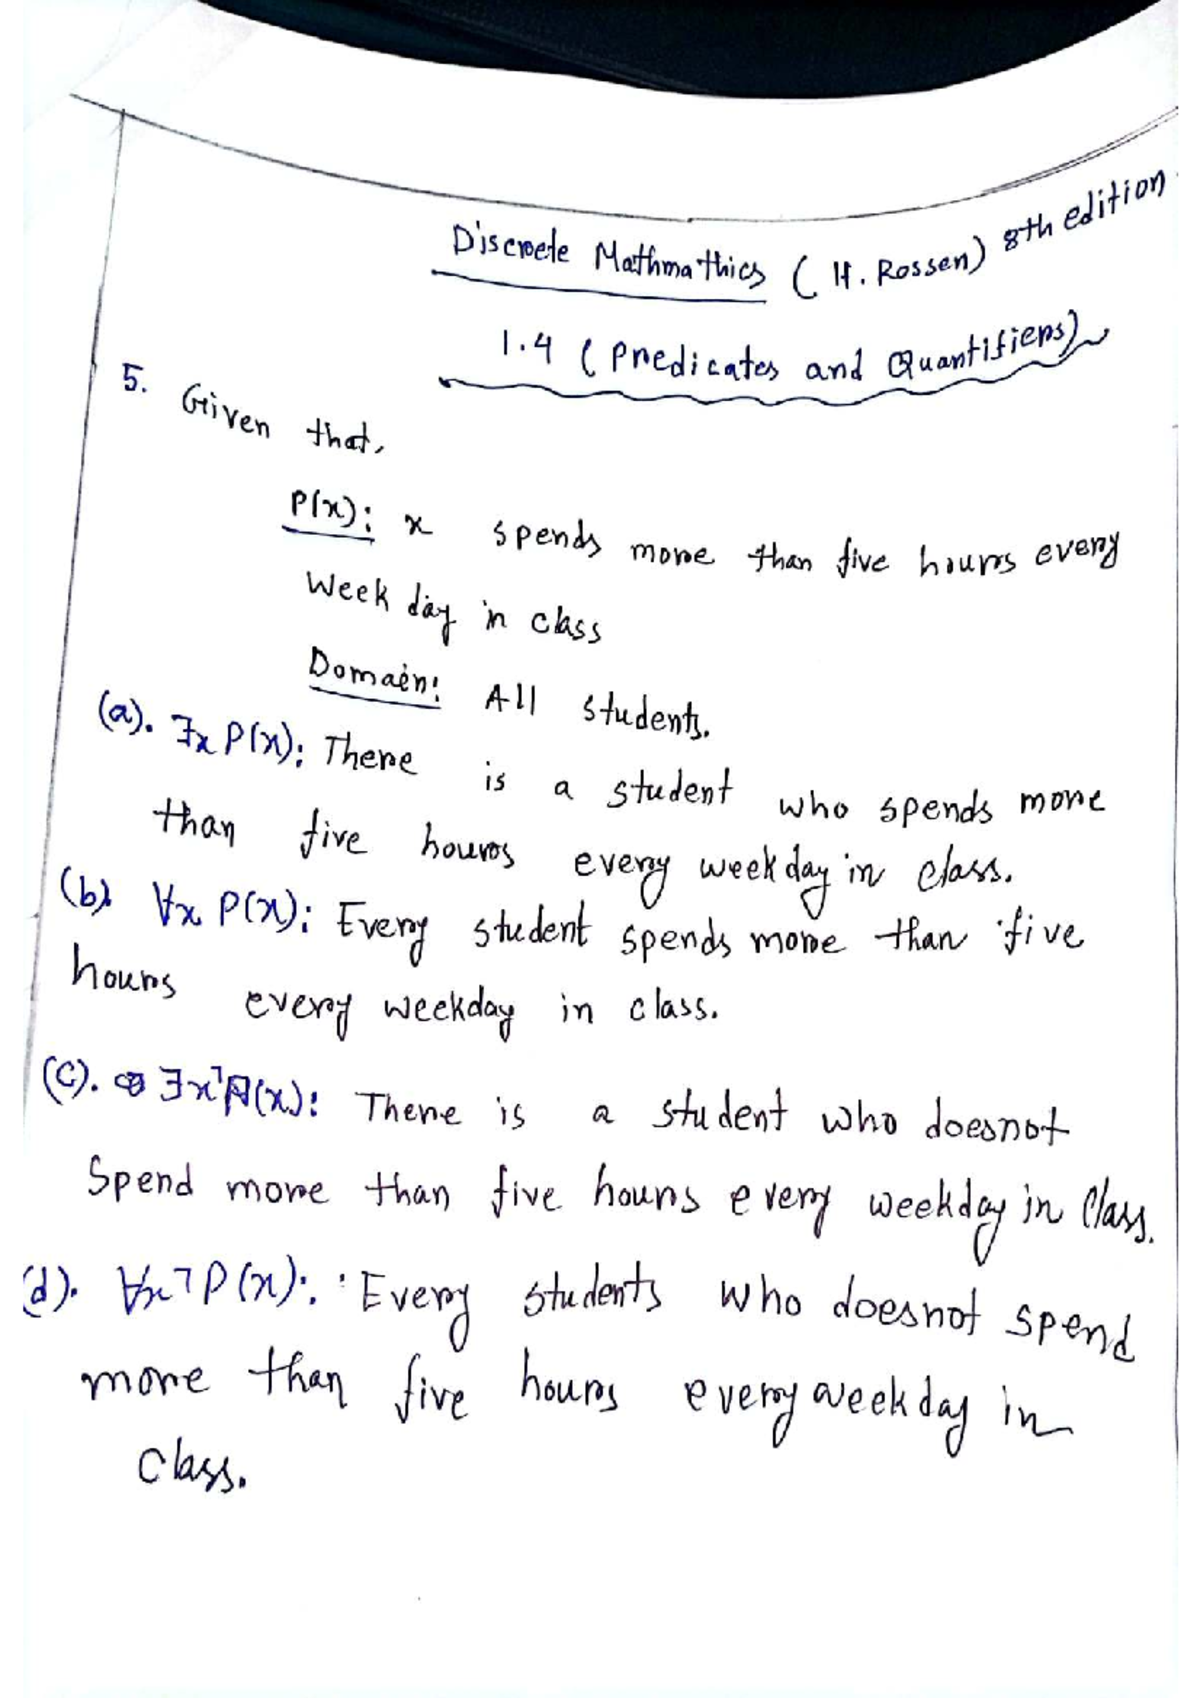 Discrete Mathmathics (H. Rossen) 8th edition
1.4 (Predicates and Quantifiers)
5. Given that,
P(x): x spends more than five hours every
Week day in class
Domain: All students.
(a). ∃x P(x): There is a student who spends more
than five hours every weekday in class.
(b) ∀x P(x): Every student spends more than five
hours every weekday in class.
(c). ∃x¬P(x): There is a student who doesnot
Spend more than five hours every weekday in Class.
(d). ∀x¬P(x): Every students who doesnot spend
more than five hours every weekday in
Class.